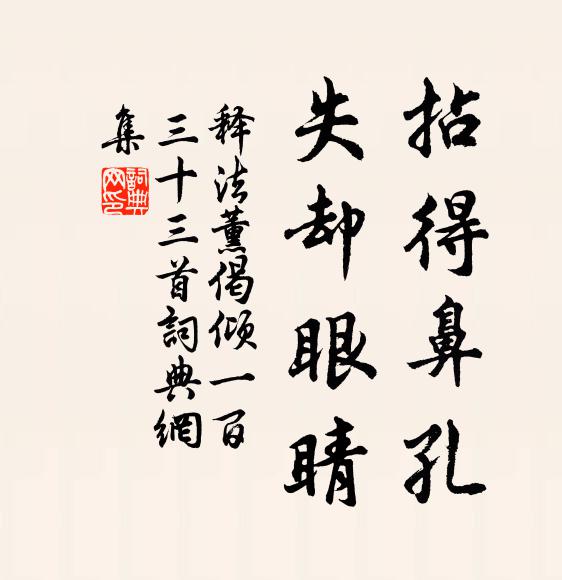 拈得鼻孔
失却眼睛
释法薰偈倾一百
三十三首詞典網
集
詞典
网印